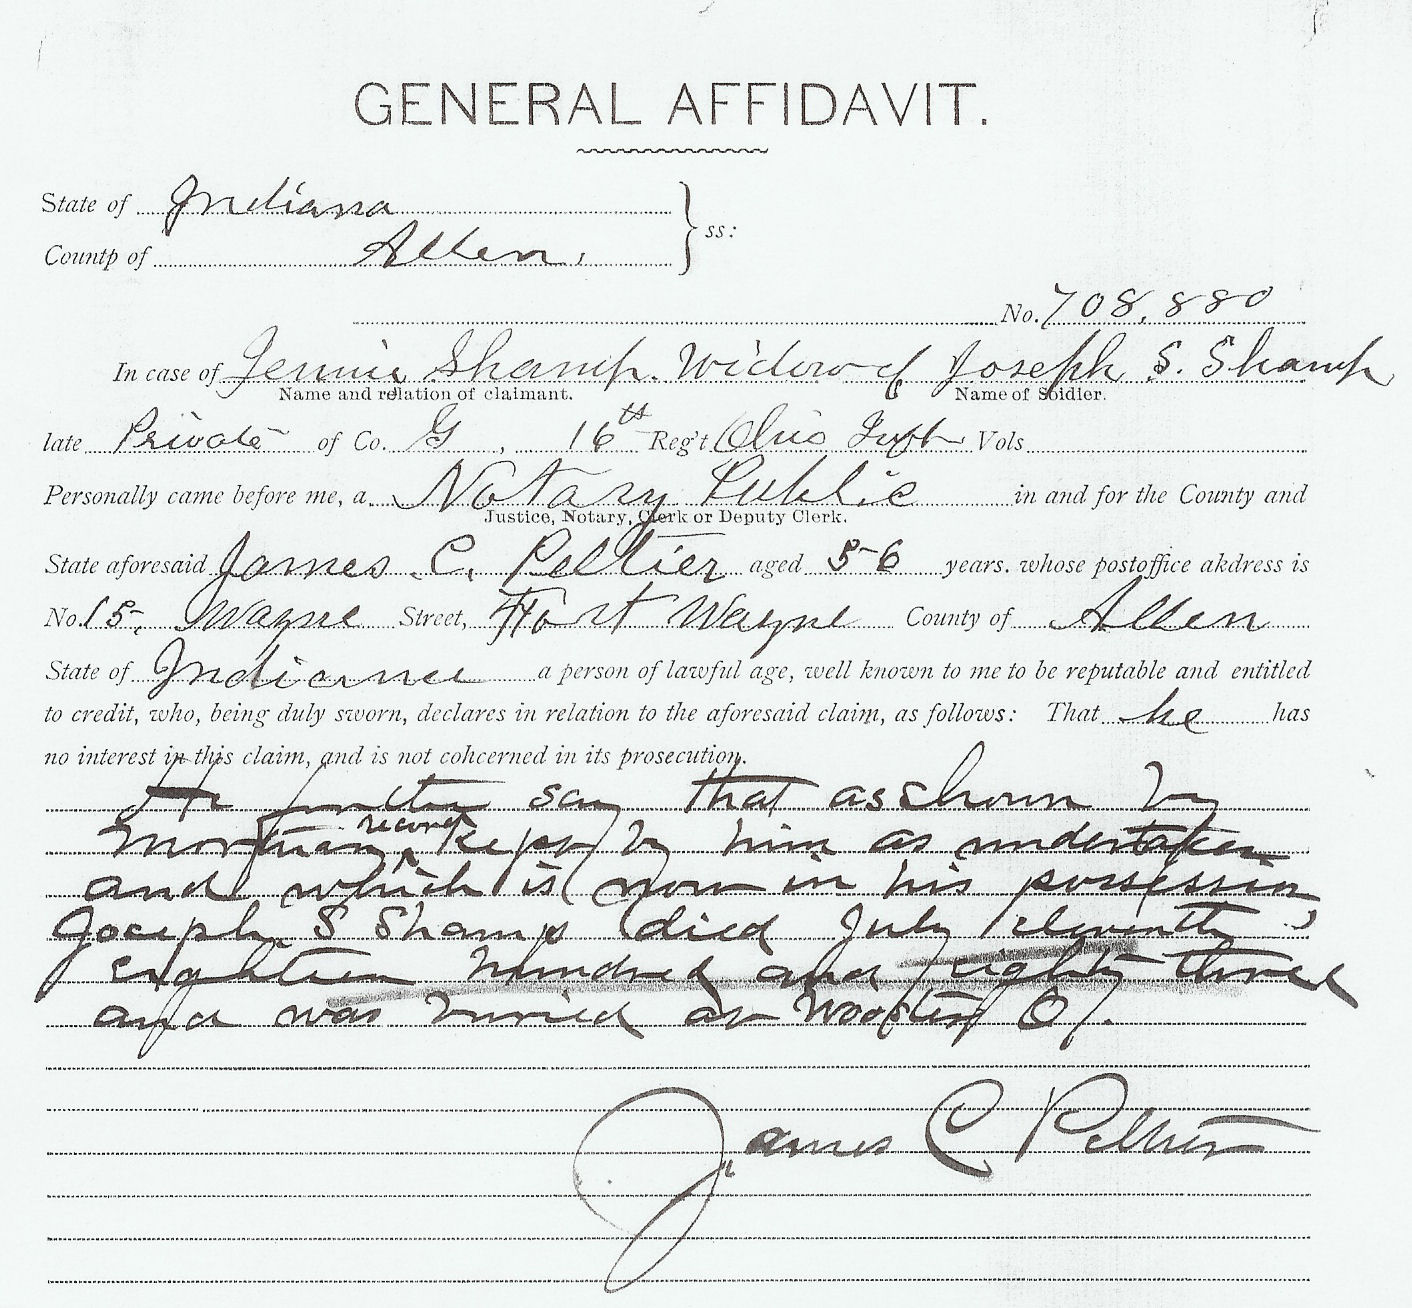 GENERAL AFFIDAVIT.
State of Indiana
Countp of Allen, ss:
No. 708,880
In case of Jennie Shamp. Widow of Joseph S. Shamp
Name and relation of claimant. Name of Soidier.
late Private of Co. G, 16th Reg't Ohio Inft Vols
Personally came before me, a Notary Public in and for the County and
Justice, Notary, Clerk or Deputy Clerk.
State aforesaid James C. Peltier aged 56 years. whose postoffice akdress is
No. 15, Wayne Street, Fort Wayne County of Allen
State of Indiana a person of lawful age, well known to me to be reputable and entitled
to credit, who, being duly sworn, declares in relation to the aforesaid claim, as follows: That he has
no interest in this claim, and is not cohcerned in its prosecution.
He further say that as shown by
Mortuary record kept by him as undertaker
and which is now in his possession
Joseph S Shamp died July eleventh
eighteen hundred and eighty three
and was buried at Wooster O.
James C Peltier